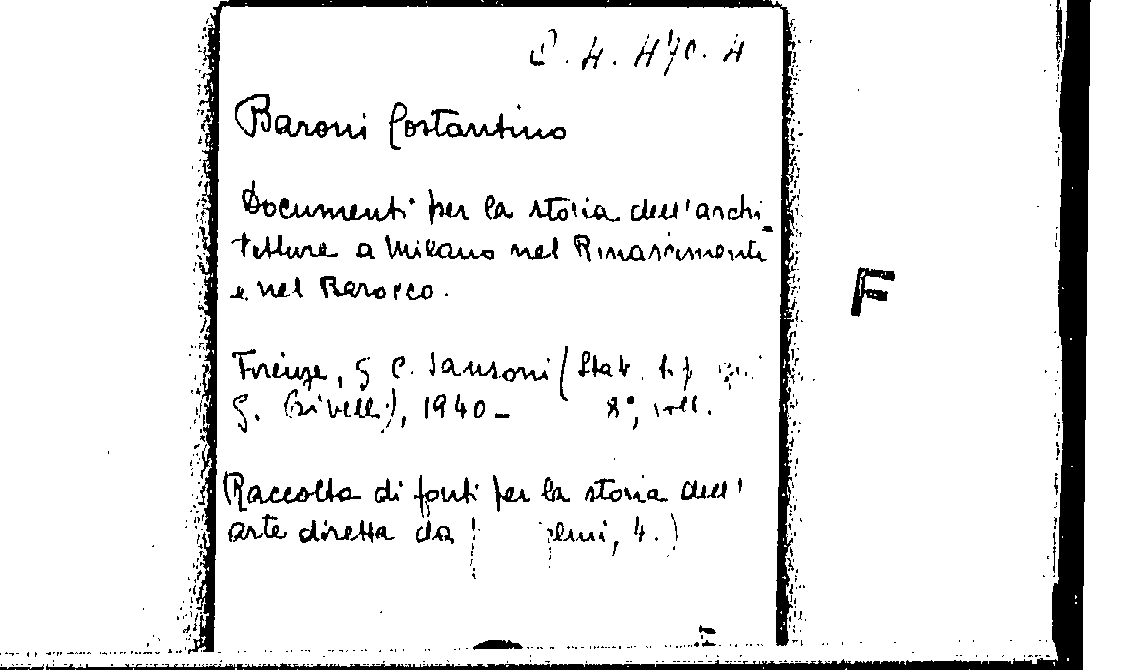 2.4.470.4
Baroni Costantino
Documenti per la storia dell'archi-
tetture a Milano nel Rinascimento
e nel Barocco.
Firenze, G C. Sansoni (Stab. tip.
G. Civelli), 1940- 8°, voll.
Raccolta di fonti per la storia dell'
arte diretta da 4.)
F